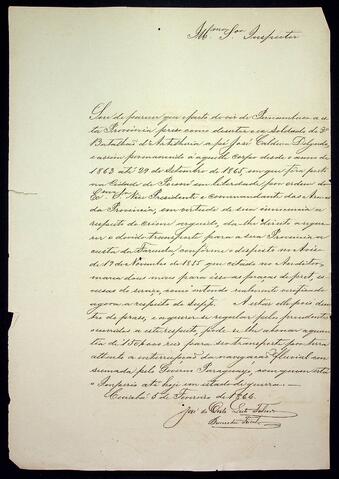 Illmo. Snr. Inspector
Sou de parecer que o facto de vir de Pernambuco a es
ta Provincia preso como desertor o ex Soldado do 3º
Batalhão d'Artilharia a pé José Caldeira Delgado,
e assim permanecido áquelle corpo desde o anno de
1863 até 29 de Setembro de 1865, em que foi posto
na Cidade de em liberdade, por ordem do
Exmo. Sr. Vice Presidente e commandante das Armas
da Provincia, em virtude de sua innocencia a
respeito do crime arguido, da lhe direito a reque
rer o devido transporte para a sua Provincia a
custa da Fazenda, conforme o disposto no Aviso
de 19 de Novembro de 1855 que citado no
marca dous mezes para isso as praças de pret,
, como entendo realmente verificado
agora a respeito do Suppe. A achar elle pois den
tro do praso, e a querer se regular pelos precedentes
occorridos a este respeito, pode se lhe abonar a quan
tia de 150$000 reis para seu transporte por terra
attenta a interrupção da navegação fluvial en
pelo Governo Paraguayo, com quem está
o Imperio até hoje em estado de guerra.
Cuiabá 5 de Fevereiro de 1866.
José de